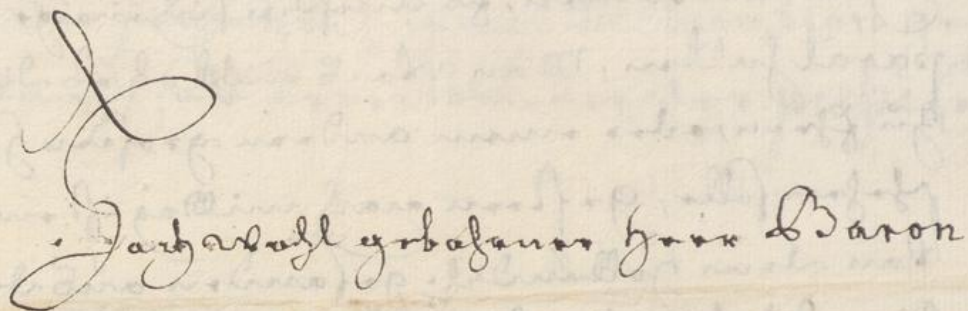 Hoch wohl gebohrner Herr Baron